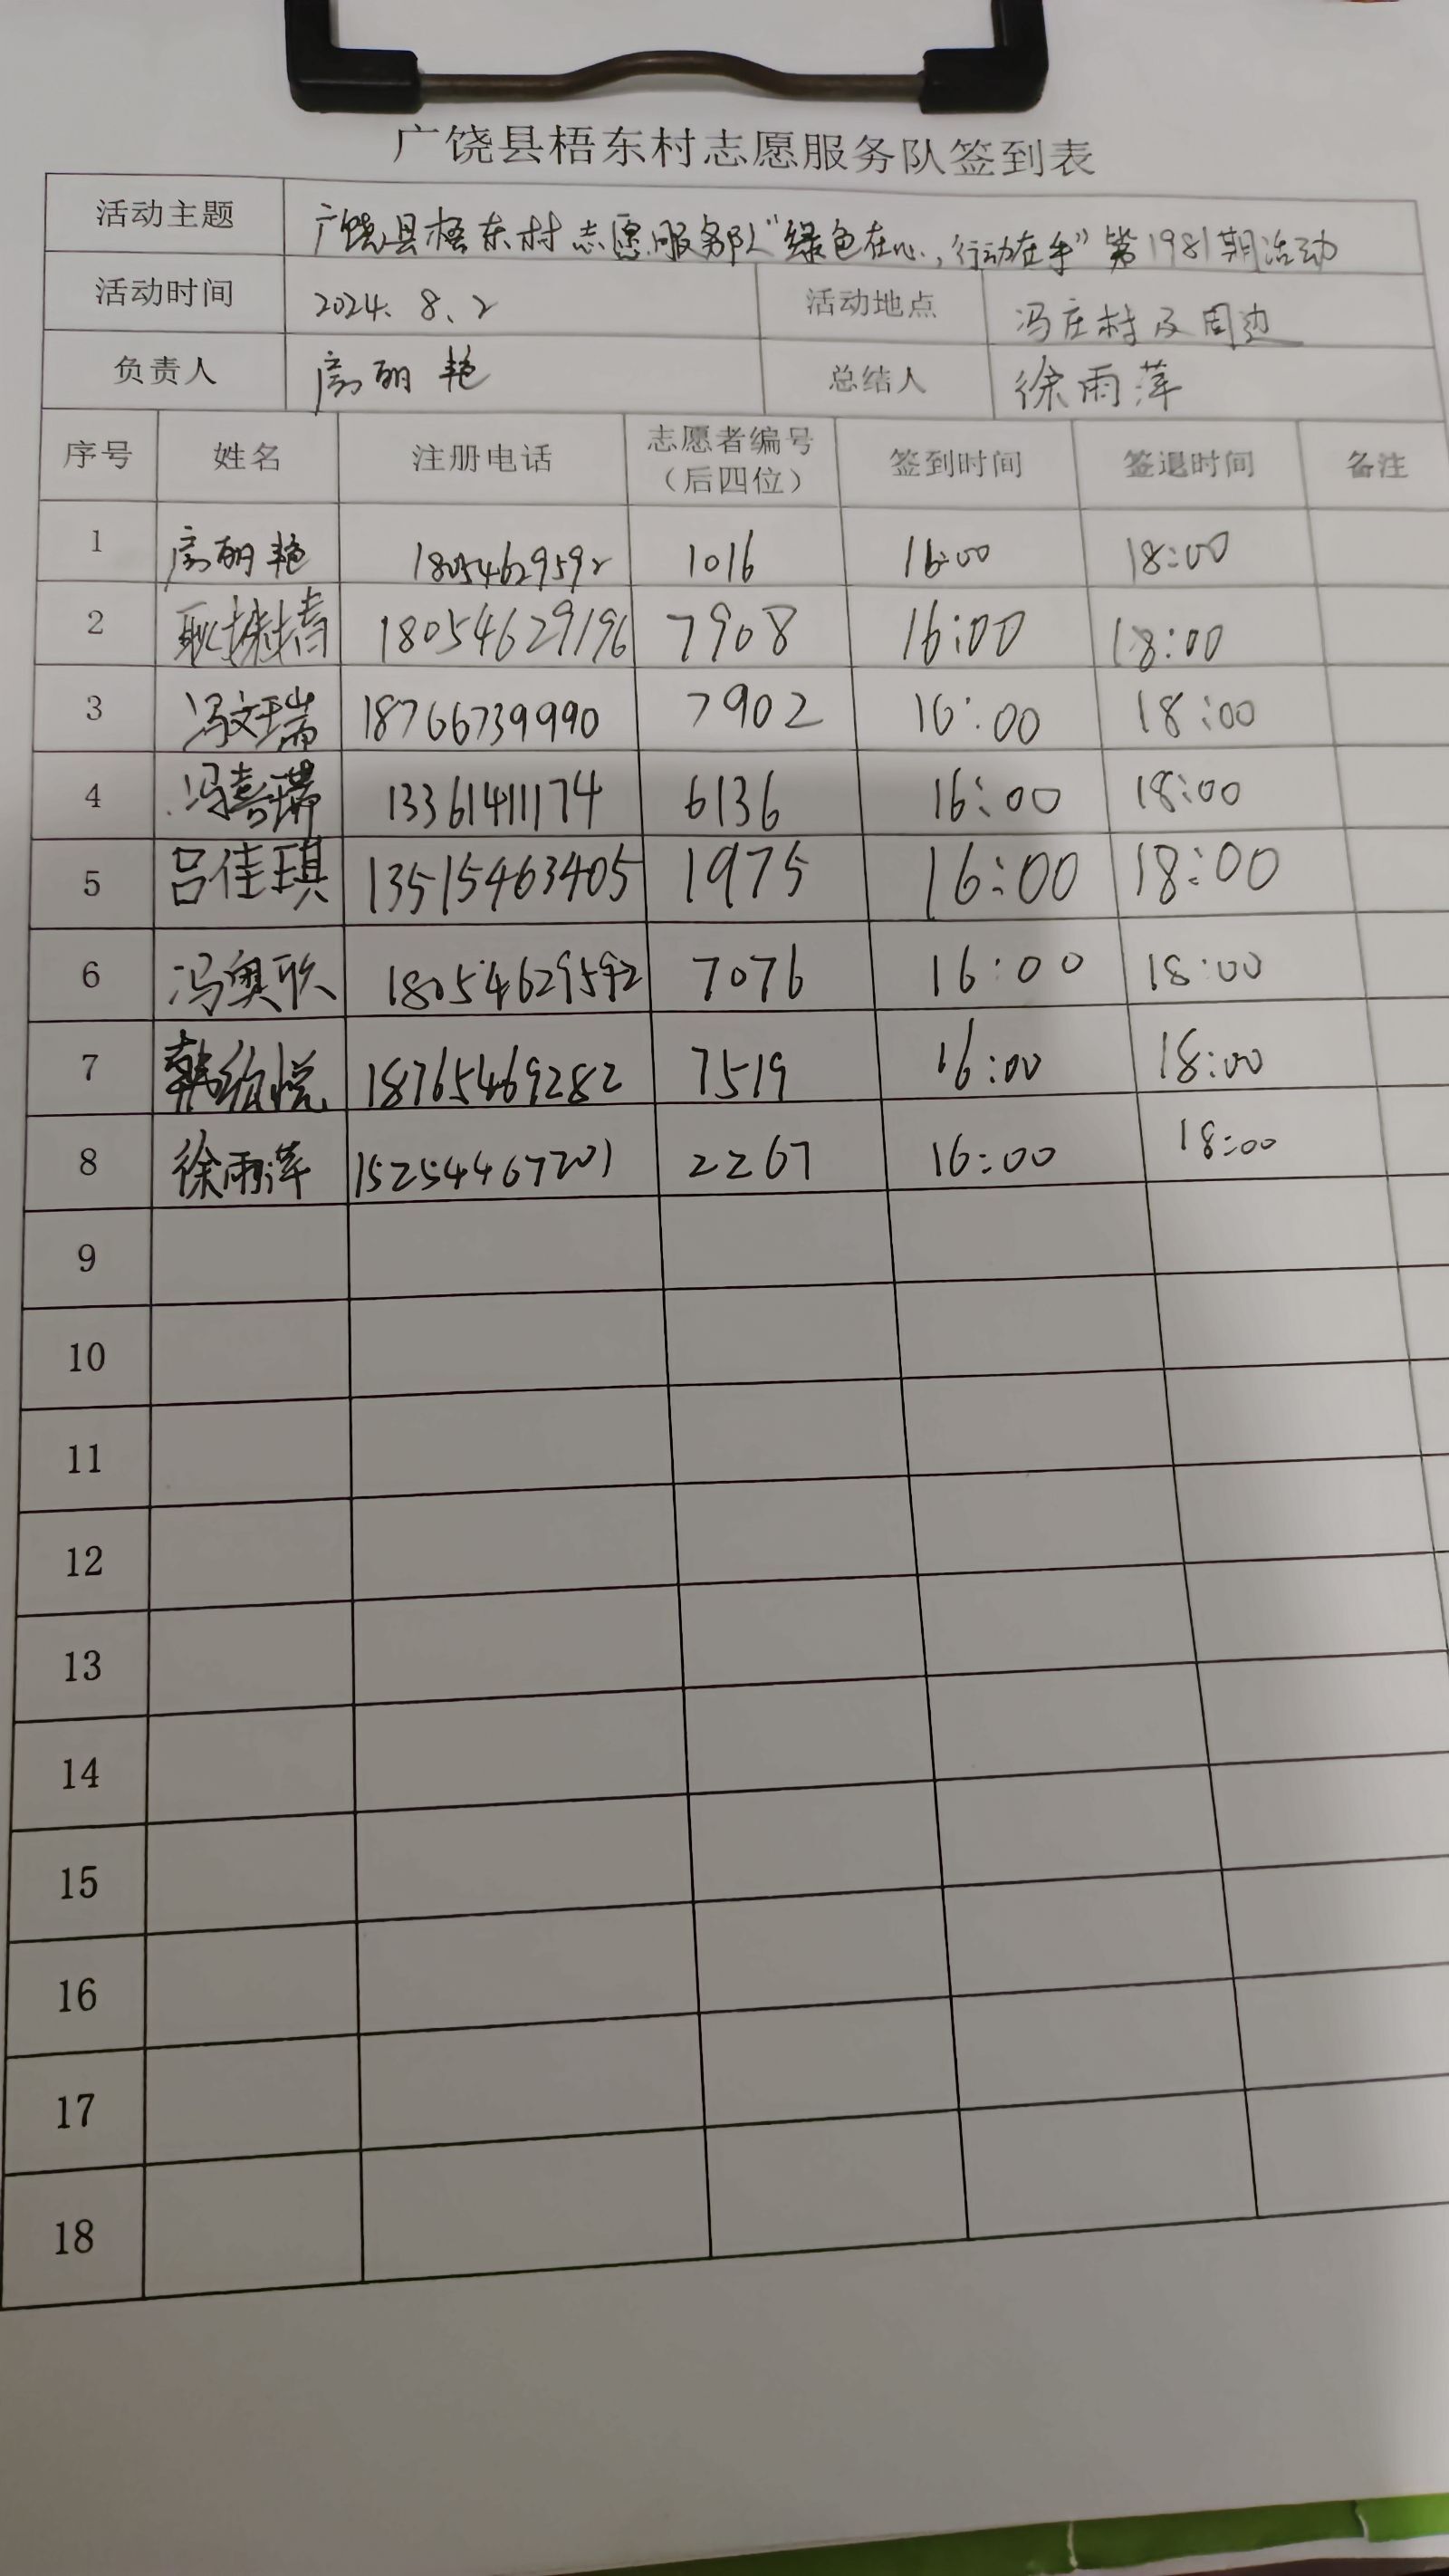 广饶县梧东村志愿服务队签到表
活动主题 广饶县梧东村志愿服务队“绿色在心,行动在手”第1981期活动
活动时间 2024.8.2 活动地点 冯庄村及周边
负责人 高丽艳 总结人 徐雨萍
序号 姓名 注册电话 志愿者编号(后四位) 签到时间 签退时间 备注
1 高丽艳 18054629592 1016 16:00 18:00
2 耿 18054629196 7908 16:00 18:00
3 冯文瑞 18766739990 7902 16:00 18:00
4 冯喜瑞 13361411174 6136 16:00 18:00
5 吕佳琪 13515463405 1975 16:00 18:00
6 冯奥欣 18054629592 7076 16:00 18:00
7 韩 悦 18765469282 7519 16:00 18:00
8 徐雨萍 15254467201 2267 16:00 18:00
9
10
11
12
13
14
15
16
17
18